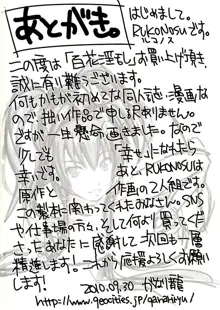 あとがき。
はじめまして。
RUKONOSUです。
ルコノス
この度は「百花淫もし」お買い上げ頂き、
誠に有難うございます。
何もかもが初めてな同人誌・漫画な
ので、拙い作品で申し訳ありません。
ですが一生懸命画きました。なので
少しでも「幸せ」になれたら
幸いです。
あと、RUKONOSUは
原作と作画の2人組です。
この製本に関わってくれたみなさん、SNS
や仕事場の方々、そして何より買ってくだ
さったあなたに感謝して次回も一層
精進します!これから応援よろしくお願い
します!
2010.09.30
http://www.geocities.jp/ganariryu/